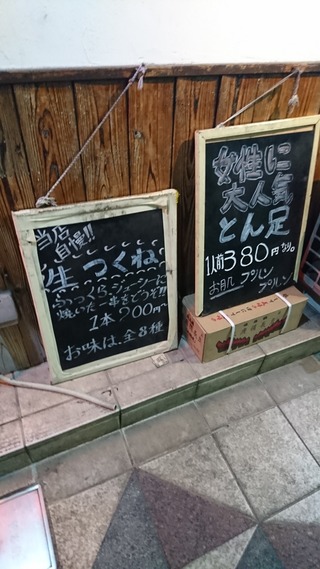 当店
自慢!!
生つくね
ふっくらジューシーに
焼いた一本をどうぞ!!
1本 200円~
お味は、全8種
女性に
大人気
とん足
1人前380円なり。
お肌プリン
プリン